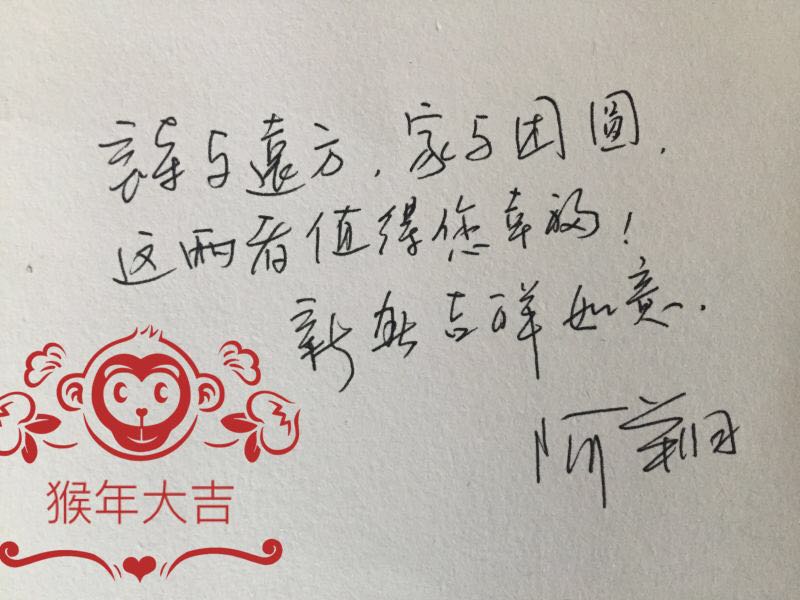 詩与遠方，家与团圓，
这两者值得您幸福！
新年吉祥如意．
阿翔
猴年大吉